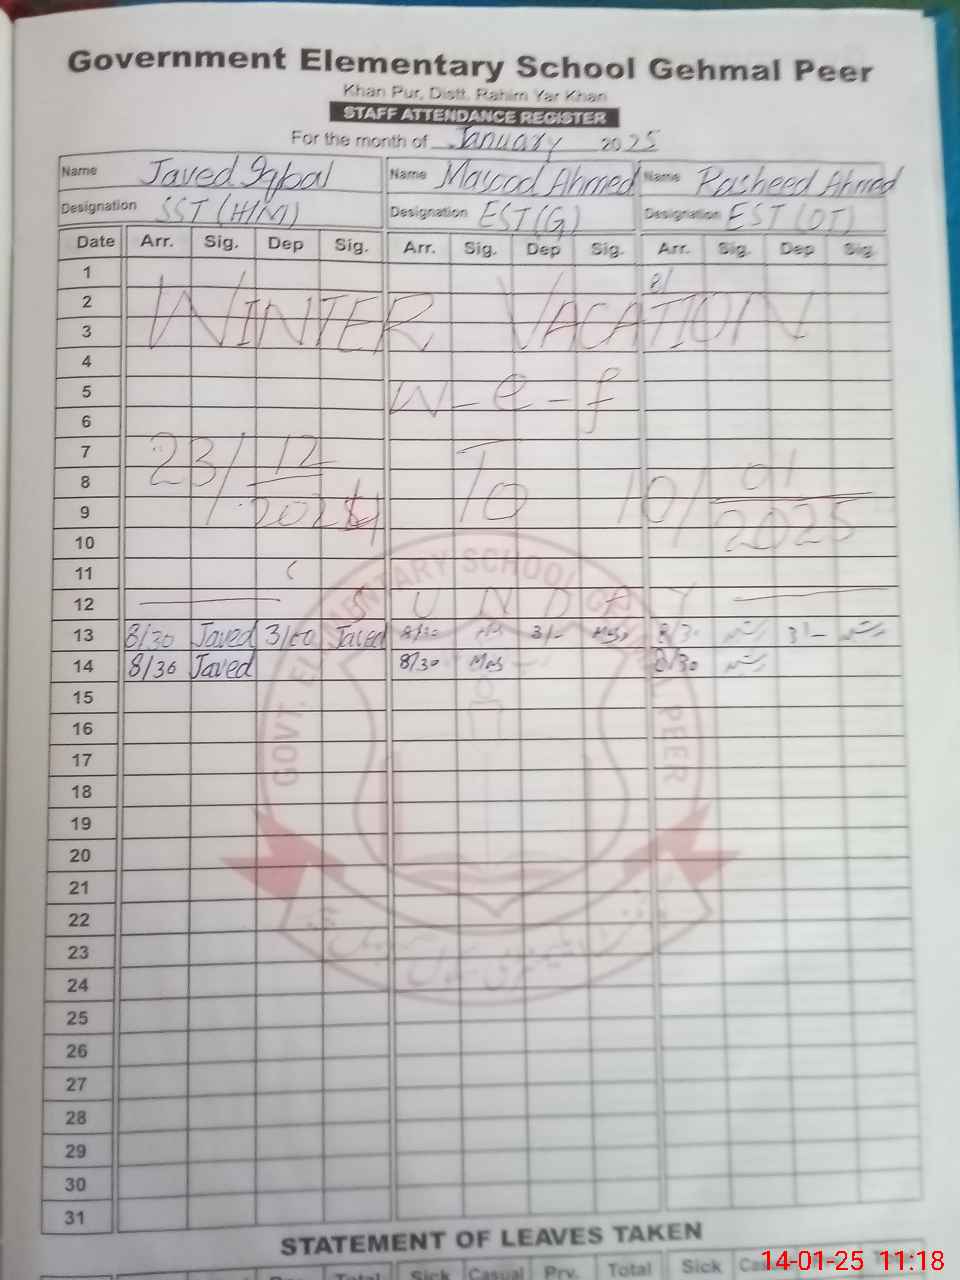 Government Elementary School Gehmal Peer
Khan Pur, Distt. Rahim Yar Khan
STAFF ATTENDANCE REGISTER
For the month of January 2025
Name Javed Iqbal Name Masood Ahmed Name Rasheed Ahmed
Designation SST (H/M) Designation EST (G) Designation EST (OT)
Date Arr. Sig. Dep Sig. Arr. Sig. Dep Sig. Arr. Sig. Dep Sig.
1 8/
2
3
WINTER VACATION
4
5 W-e-f
6
7
8
9
23/12/2024 To 10/01/2025
10
11
12 SUNDAY
13 8/30 Javed 3/00 Javed 8/30 Mas 3/- Mas 8/30 رشید 3/- رشید
14 8/30 Javed 8/30 Mas 8/30 رشید
15
16
17
18
19
20
21
22
23
24
25
26
27
28
29
30
31
GOVT. ELEMENTARY SCHOOL GEHMAL PEER
STATEMENT OF LEAVES TAKEN
Total Sick Casual Prv. Total Sick
14-01-25 11:18